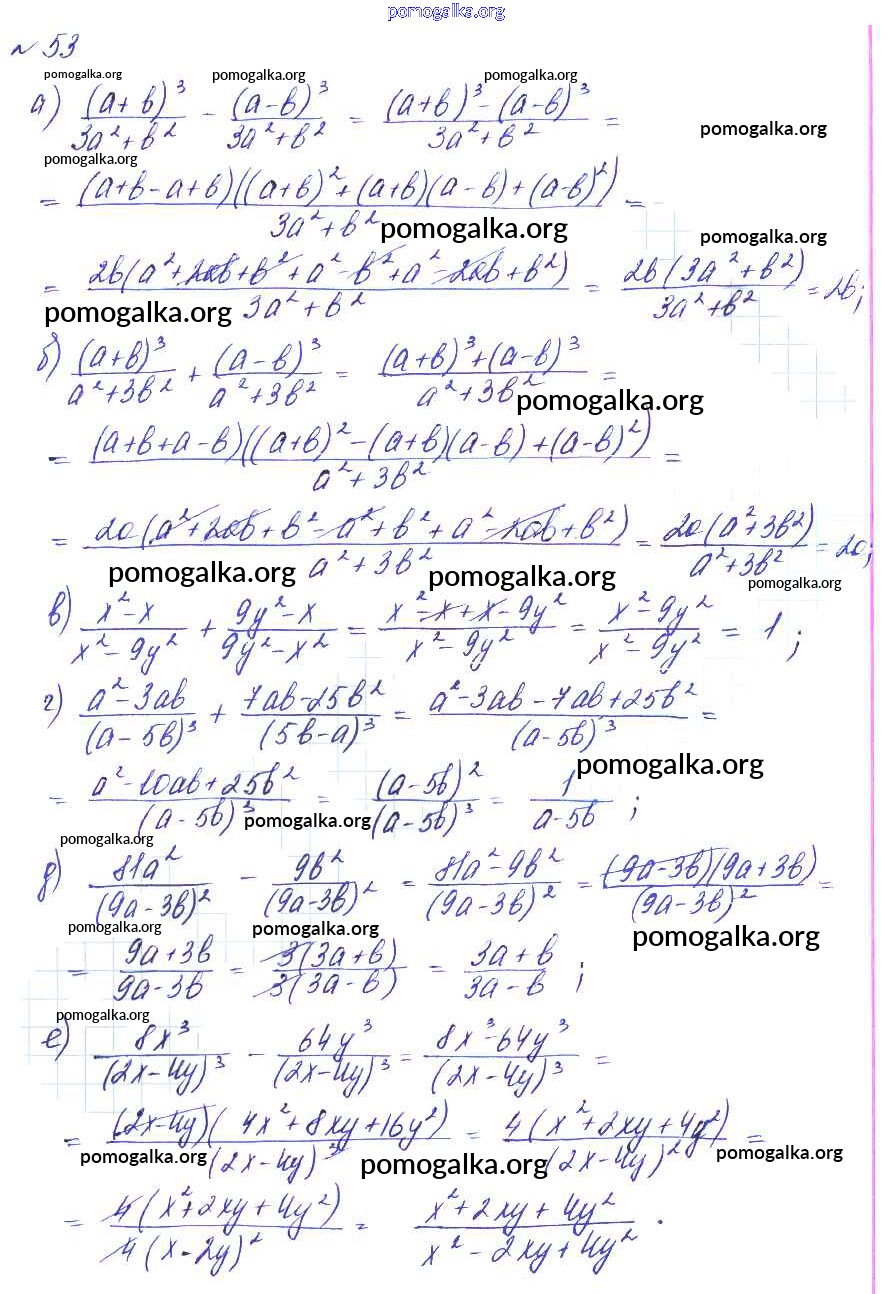 pomogalka.org
№ 53
pomogalka.org pomogalka.org pomogalka.org
а) (a+b)³/(3a²+b²) - (a-b)³/(3a²+b²) = ((a+b)³-(a-b)³)/(3a²+b²) =
pomogalka.org
pomogalka.org
= (a+b-a+b)((a+b)²+(a+b)(a-b)+(a-b)²)/(3a²+b²) =
pomogalka.org pomogalka.org
= 2b(a²+2ab+b²+a²-b²+a²-2ab+b²)/(3a²+b²) = 2b(3a²+b²)/(3a²+b²) = 2b;
pomogalka.org
б) (a+b)³/(a²+3b²) + (a-b)³/(a²+3b²) = ((a+b)³+(a-b)³)/(a²+3b²) =
pomogalka.org
= (a+b+a-b)((a+b)²-(a+b)(a-b)+(a-b)²)/(a²+3b²) =
= 2a(a²+2ab+b²-a²+b²+a²-2ab+b²)/(a²+3b²) = 2a(a²+3b²)/(a²+3b²) = 2a;
pomogalka.org pomogalka.org pomogalka.org
в) (x²-x)/(x²-9y²) + (9y²-x)/(9y²-x²) = (x²-x+x-9y²)/(x²-9y²) = (x²-9y²)/(x²-9y²) = 1;
г) (a²-3ab)/(a-5b)³ + (7ab-25b²)/(5b-a)³ = (a²-3ab-7ab+25b²)/(a-5b)³ =
pomogalka.org
= (a²-10ab+25b²)/(a-5b)³ = (a-5b)²/(a-5b)³ = 1/(a-5b);
pomogalka.org
pomogalka.org
д) 81a²/(9a-3b)² - 9b²/(9a-3b)² = (81a²-9b²)/(9a-3b)² = (9a-3b)(9a+3b)/(9a-3b)² =
pomogalka.org pomogalka.org pomogalka.org
= (9a+3b)/(9a-3b) = 3(3a+b)/3(3a-b) = (3a+b)/(3a-b);
pomogalka.org
е) 8x³/(2x-4y)³ - 64y³/(2x-4y)³ = (8x³-64y³)/(2x-4y)³ =
= (2x-4y)(4x²+8xy+16y²)/(2x-4y)³ = 4(x²+2xy+4y²)/(2x-4y)² =
pomogalka.org pomogalka.org pomogalka.org
= 4(x²+2xy+4y²)/4(x-2y)² = (x²+2xy+4y²)/(x²-2xy+4y²).